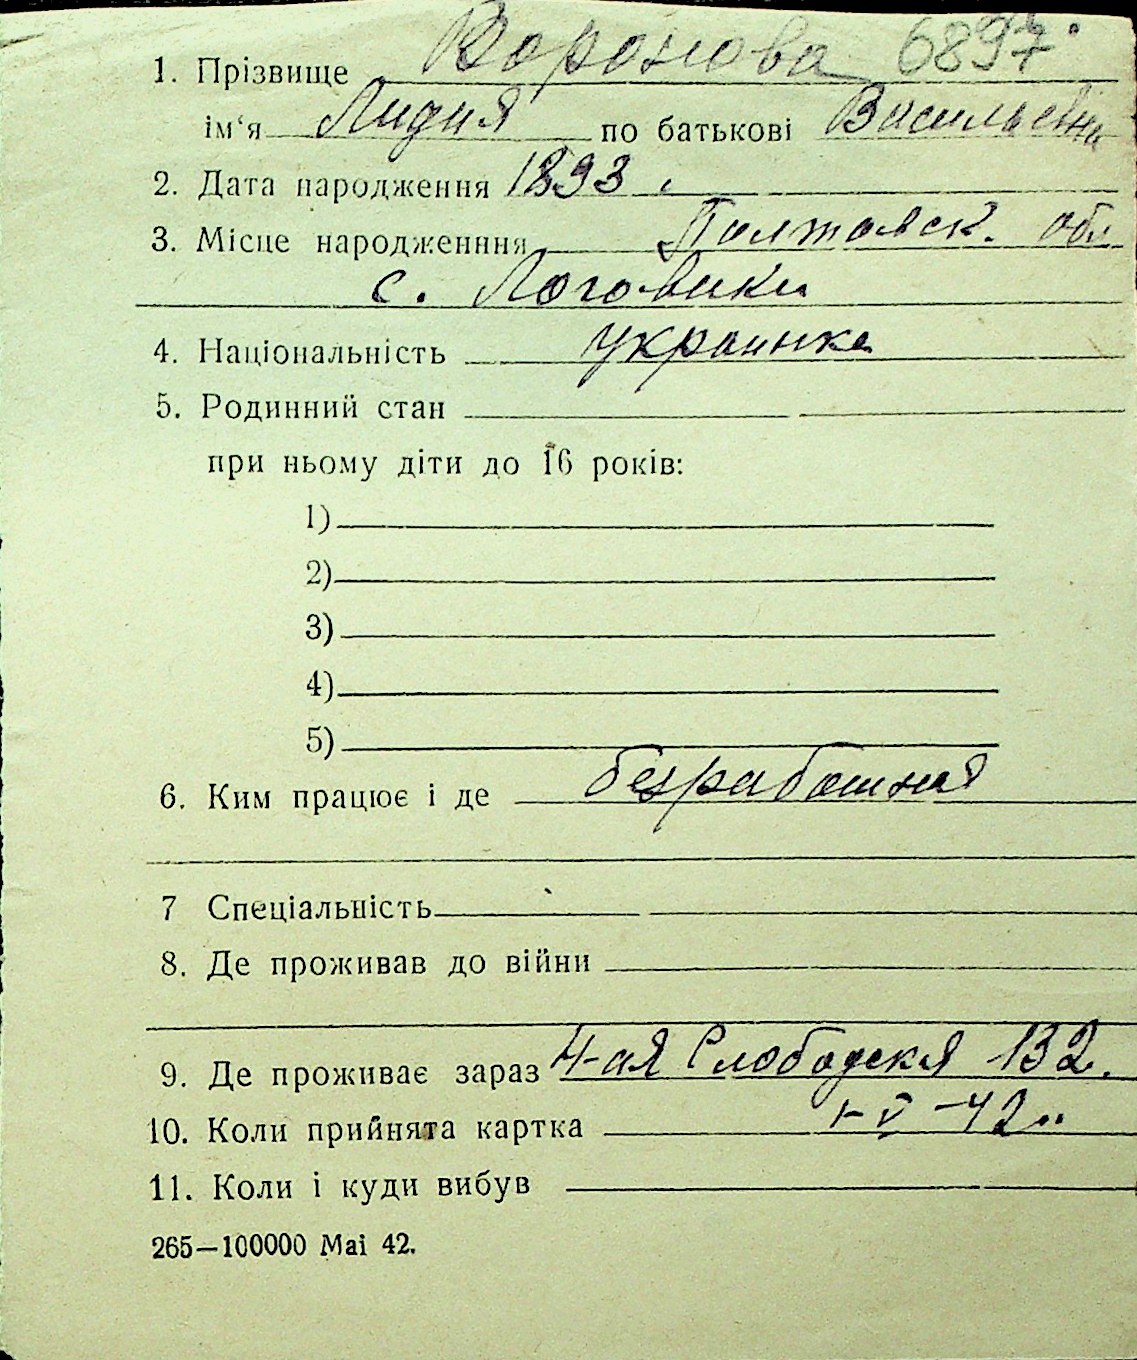 1. Прізвище Воронова 6897
ім‘я Лидия по батькові Васильевна
2. Дата народження 1893 г.
3. Місце народженння Полтавск. обл.
с. Логовики
4. Національність украинка
5. Родинний стан
при ньому діти до 16 років:
1)
2)
3)
4)
5)
6. Ким працює і де безработная
7 Спеціальність
8. Де проживав до війни
9. Де проживає зараз 4-ая Слободская 132.
10. Коли прийнята картка 1-V-42
11. Коли і куди вибув
265—100000 Маі 42.